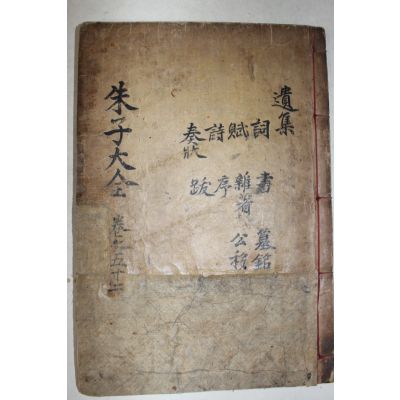 遺集
詞 書 墓銘
賦 雜著 公移
詩 序
奏狀 跋
朱子大全
卷之五十二